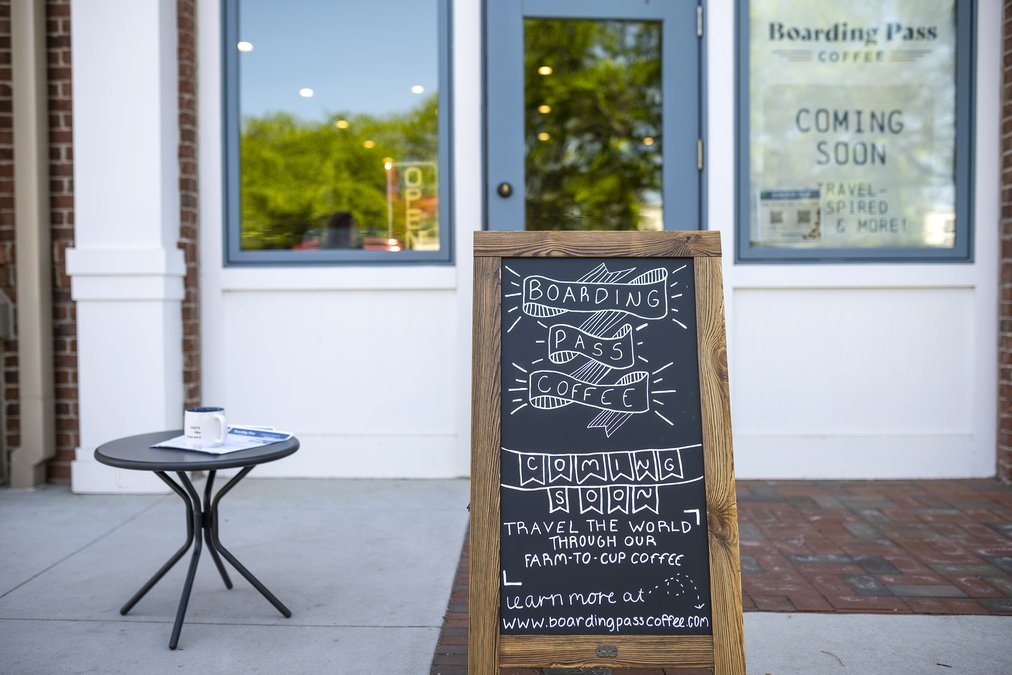 Boarding Pass
COFFEE
COMING
SOON
TRAVEL-
SPIRED
& MORE!
OPEN
BOARDING
PASS
COFFEE
COMING
SOON
TRAVEL THE WORLD
THROUGH OUR
FARM-TO-CUP COFFEE
learn more at
www.boardingpasscoffee.com